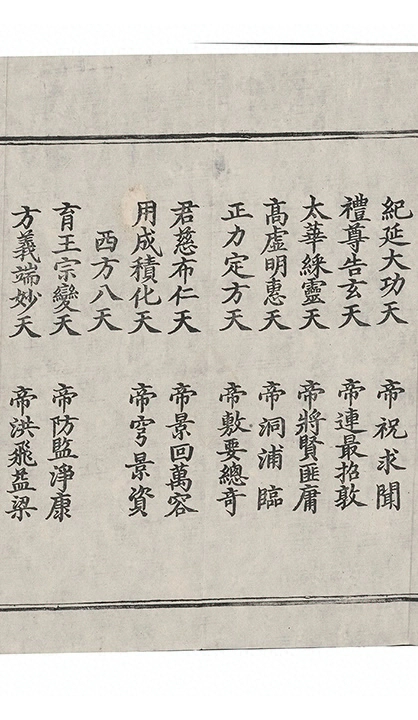 紀延大功天　帝祝求聞
禮尊告玄天　帝連最招敦
太華綵靈天　帝將賢匪庸
高虛明惠天　帝洞浦臨
正力定方天　帝敷要總奇
君慈布仁天　帝景回萬容
用成積化天　帝穹景資
西方八天
育王宗變天　帝防監淨康
方義端妙天　帝洪飛盐梁